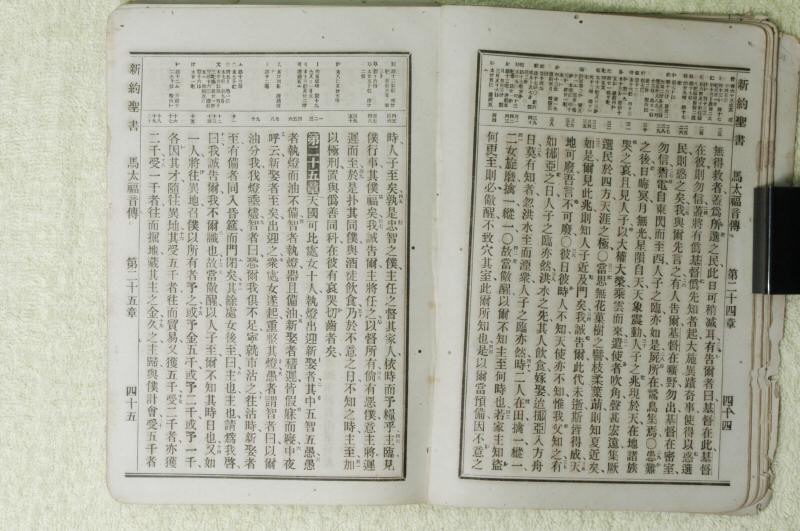 新約聖書 馬太福音傳 第二十四章 四十四
無得救者蓋爲所選之民此日可稍減耳有告爾者曰基督在此基督
在彼則勿信蓋將有僞基督僞先知者起大施異蹟奇事使得以惑選
民則惑之矣我與爾先言之有人告爾基督在曠野勿出基督在密室
勿信猶電自東閃而至西人子之臨亦如是屍所在鷲鳥集焉○患難
之後日晦冥月無光星隕自天天象震動人子之兆現於天在地諸族
哭之哀且見人子以大權大榮乘雲而來遣使者吹角聲甚宏遠集厥
選民於四方天涯之極○當思無花果樹之譬枝柔葉萌則知夏近矣
如是爾見此兆則知人子近及門矣我誠告爾此代未逝斯皆得成天
地可廢吾言不可廢○彼日彼時人不知天使亦不知惟我父知之有
如挪亞之日人子之臨亦然洪水之先其人飲食嫁娶迨挪亞入方舟
日莫有知者忽洪水至而湮衆人子之臨亦然時二人在田擒一縱一
二女旋磨擒一縱一○故當儆醒以爾不知主至何時也若家主知盜
何更至則必儆醒不致穴其室此爾所知也是以爾當預備因不意之
時人子至矣孰是忠智之僕主任之督其家人依時而予糧乎主臨見
僕行事其僕福矣我誠告爾主將任之以督所有倘有惡僕意主將遲
遲而至於是扑其同僕與酒徒飲食乃於不意之日不知之時主至加
以極刑置與僞善同科在彼有哀哭切齒者矣
第二十五章天國可比處女十人執燈出迎新娶者其中五智五愚愚
者執燈而油不備智者執燈器且備油新娶者稽遲皆假寐而寢中夜
呼云新娶者至矣出迎之衆處女遂起重整其燈愚者謂智者曰以爾
油分我我燈垂燼智者曰恐爾我俱不足寧就市沽之往沽時新娶者
至有備者同入音筵而門閉矣其餘處女後至曰主也主也請爲我啓
曰我誠告爾我不爾識也故當儆醒以人子至爾不知其時日也又如
一人將往異地召僕以所有者予之或予金五千或予二千或予一千
各因其才隨往異地其受五千者往而貿易又獲五千受二千者亦獲
二千受一千者往而掘地藏其主之金久之主歸與僕計會受五千者
新約聖書 馬太福音傳 第二十五章 四十五